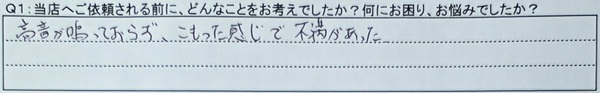 Q1：当店へご依頼される前に、どんなことをお考えでしたか？何にお困り、お悩みでしたか？
高音が鳴っておらず、こもった感じで不満があった